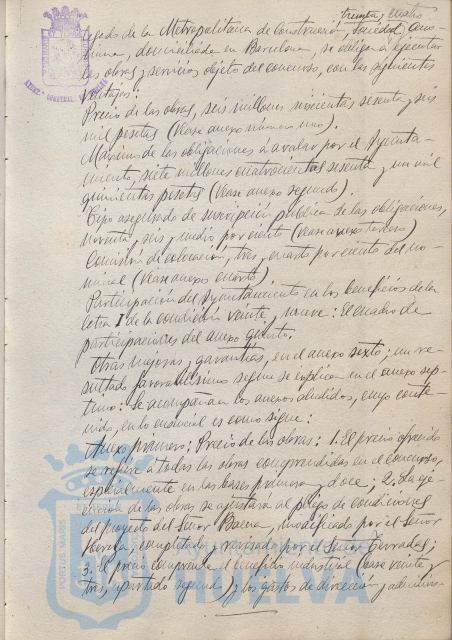 treinta y cuatro
legado de la Metropolitana de Construcción, sociedad anó-
nima, domiciliada en Barcelona, se obliga a ejecutar
las obras y servicios objeto del concurso, con las siguientes
ventajas:
Precio de las obras, seis millones novecientas sesenta y seis
mil pesetas (Véase anexo número uno).
Máximo de las obligaciones a avalar por el Ayunta-
miento, siete millones cuatrocientas sesenta y un mil
quinientas pesetas (Véase anexo segundo).
Tipo asegurado de suscripción pública de las obligaciones,
noventa y seis y medio por ciento (véase anexo tercero)
Comisión de colocación, tres y cuarto por ciento del no-
minal (Véase anexo cuarto)
Participación del Ayuntamiento en los beneficios de la
letra I de la condición veinte y nueve: El cuadro de
participaciones del anexo quinto.
Otras mejoras y garantías, en el anexo sexto; un re-
sultado favorabilísimo según se explica en el anexo sép-
timo: Se acompañan los anexos aludidos, cuyo conte-
nido, en lo esencial es como sigue:
Anexo primero: Precio de las obras: 1. El precio ofrecido
se refiere a todas las obras comprendidas en el concurso,
especialmente en las bases primera y doce; 2. La eje-
cución de las obras se ajustará al pliego de condiciones
del proyecto del Señor Baena, modificado por el Señor
y completado y revisado por el Señor Terradas;
3. El precio comprende el beneficio industrial (base veinte y
tres, apartado segundo), y los gastos de dirección y administra-
PORTUS MARIS
HUELVA